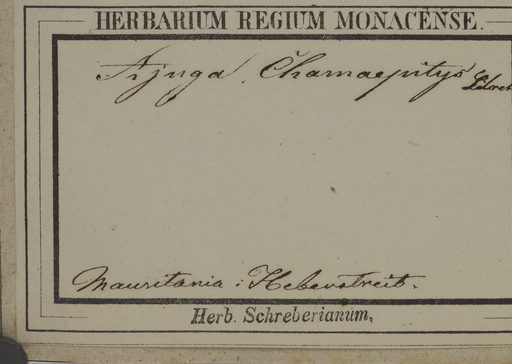 HERBARIUM REGIUM MONACENSE.
Ajuga Chamaepitys
Mauritania: Hebenstreit.
Herb. Schreberianum,